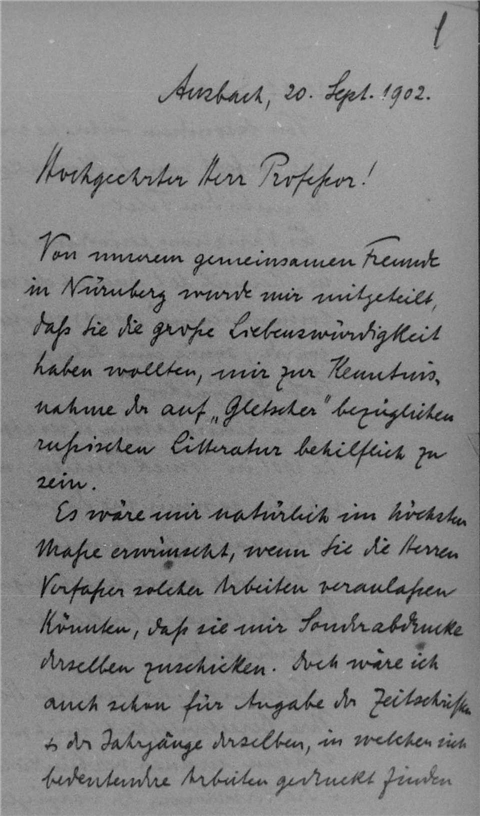 1
Ansbach, 20. Sept. 1902.
Hochgeehrter Herr Profeßor!
Von unserem gemeinsamen Freunde
in Nürnberg wurde mir mitgeteilt,
daß Sie die große Liebenswürdigkeit
haben wollten, mir zur Kenntnis-
nahme der auf „Gletscher" bezüglichen
rußischen Litteratur behilflich zu
sein.
Es wäre mir natürlich im höchsten
Maße erwünscht, wenn Sie die Herren
Verfaßer solcher Arbeiten veranlaßen
könnten, daß sie mir Sonderabdrucke
derselben zuschicken. Doch wäre ich
auch schon für Angabe der Zeitschriften
& der Jahrgänge derselben, in welchen sich
bedeutendere Arbeiten gedruckt finden